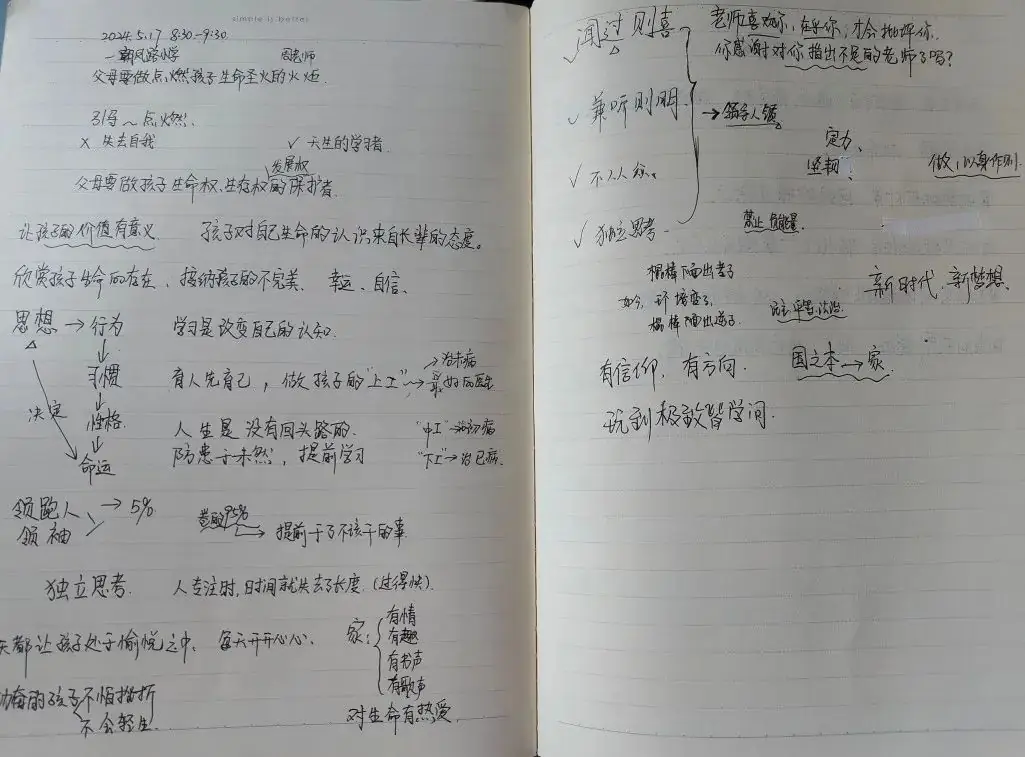 simple is better
2024.5.17 8:30-9:30
朝凤路小学 周老师
父母要做点燃孩子生命圣火的火炬.
引导～点燃.
× 失去自我 ✓ 天生的学习者.
发展权
父母要做孩子生命权、生存权的保护者.
让孩子的价值有意义. 孩子对自己生命的认识来自长辈的态度。
欣赏孩子生命的存在、接纳孩子的不完美. 幸运、自信、
思想 → 行为 学习是改变自己的认知.
习惯
→治未病
育人先育己, 做孩子的"上工" → 最好的医生
决定
性格. 人生是没有回头路的. "中工"→治初病
命运 防患于未然, 提前学习 "下工"→治已病.
领跑人 → 5%
领袖
95% → 提前干了不该干的事.
独立思考. 人专注时,时间就失去了长度.(过得快).
天都让孩子处于愉悦之中. 每天开开心心.
家: 有情
有趣
有书声
有歌声
的孩子 不怕挫折
不会轻生.
对生命有热爱.
✓ 闻过则喜
老师喜欢你,在乎你,才会批评你.
你感谢对你指出不足的老师了吗?
✓ 兼听则明.
→ 领导人镜
定力、
坚韧、 做,以身作则
✓ 不从众。
✓ 独立思考.
禁止负能量.
棍棒下面出孝子
如今,环境变了,
棍棒下面出逆子.
新时代、新梦想.
有信仰. 有方向. 国之本→家.
玩到极致皆学问.